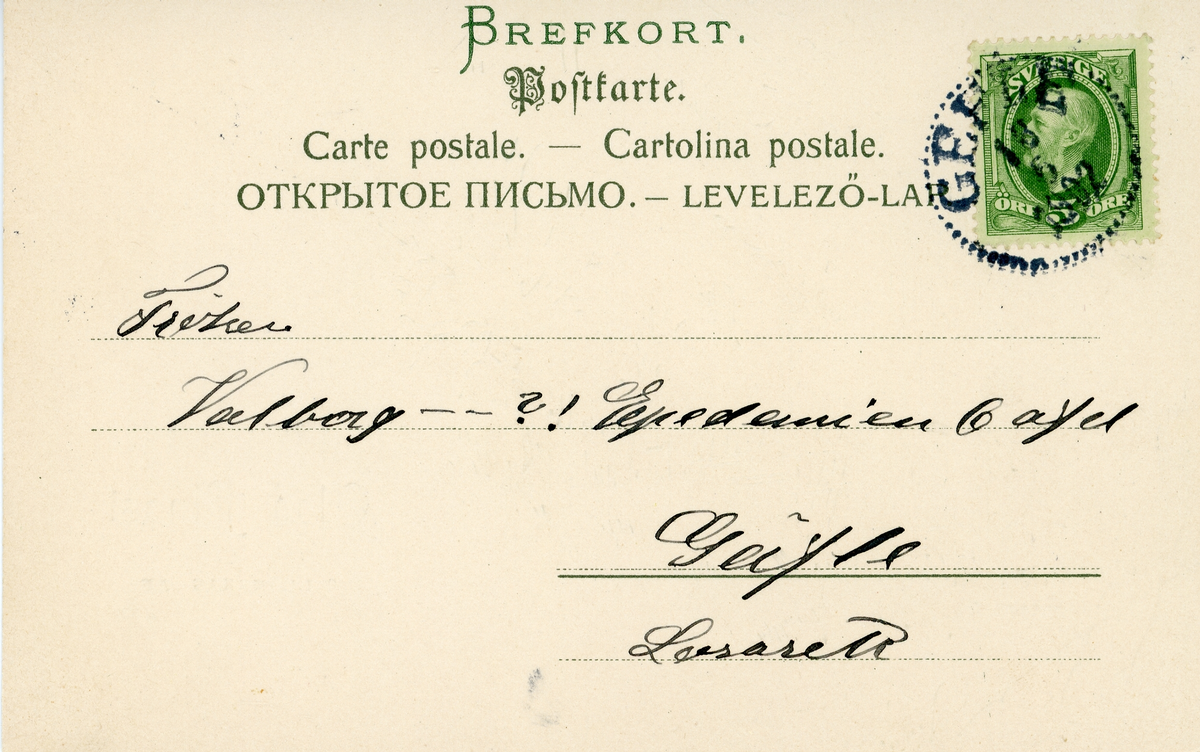 BREFKORT.
Postkarte.
Carte postale. — Cartolina postale.
ОТКРЫТОЕ ПИСЬМО. — LEVELEZŐ-LAP
SVERIGE
5 ÖRE ÖRE
GEFLE
Fröken
Valborg -- ?! Epedemien
Gäfle
Lasarett